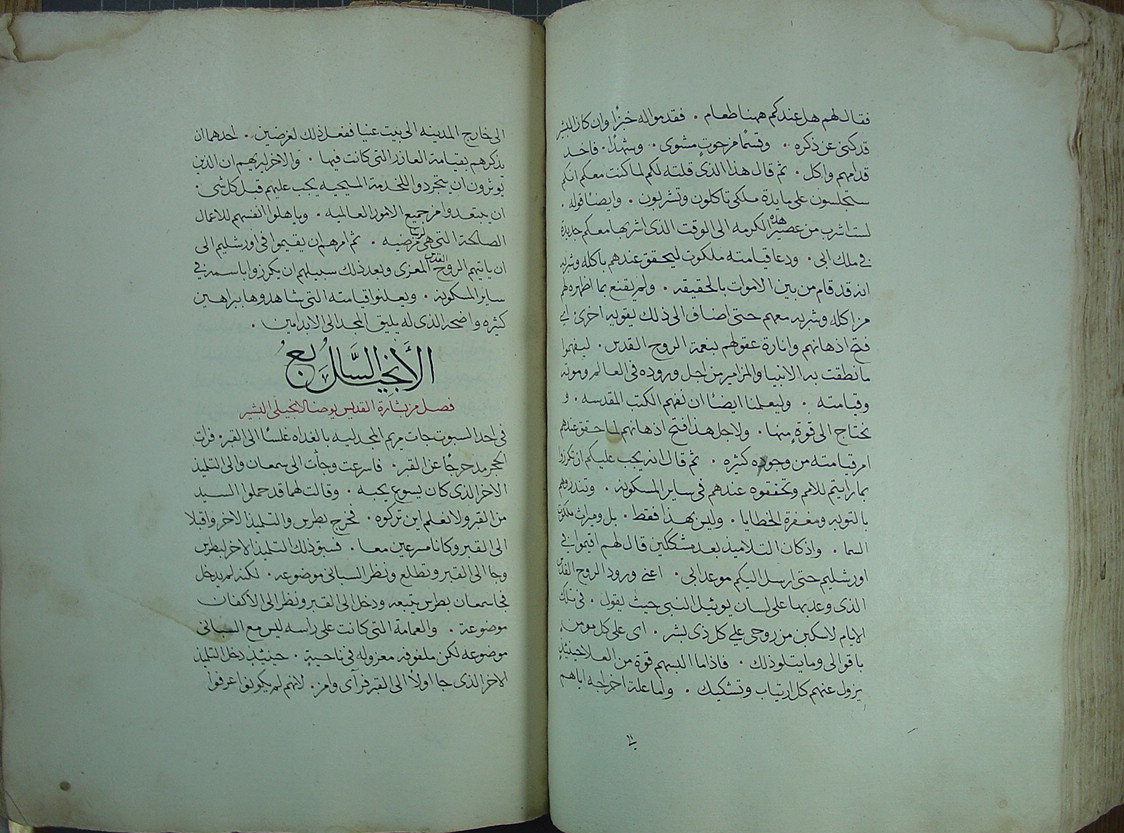 فقال لهم هل عندكم ههنا طعام . فقدموا له خبزًا وان كان البشير
قد كنى عن ذكره . وقسمًا من حوت مشوى . وشهدًا . فاخد
قدامهم واكل . ثم قال هذا الذى قلته لكم لما كنت معكم انكم
ستجلسون على مايدة ملكى تاكلون وتشربون . وايضا قوله .
لست اشرب من عصير هذه الكرمه الى الوقت الذى اشربها معكم جديدة
فى ملك ابى . ودعا قيامته ملكوت ليحقق عندهم باكله وشربه
انه قد قام من بين الاموات بالحقيقه . ولم يقنع بما اظهره لهم
من اكله وشربه معهم حتى اضاف الى ذلك تقويه اخرى اى
فتح اذهانهم وانارة عقولهم بنعمة الروح القدس . ليفهموا
ما نطقت به الانبيا والمزامير من اجل وروده فى العالم وموته
وقيامته . وليعلمنا ايضا ان نفهم الكتب المقدسه . و
نحتاج الى قوة منها . ولاجل هذا فتح اذهانهم لما حقق عندهم
امر قيامته من وجوه كثيره . ثم قال انه يجب عليكم ان تكرزوا
بما رايتم للامم وتحققوه عندهم فى ساير المسكونه . وتنذروهم
بالتوبه ومغفرة الخطايا . وليس بهذا فقط . بل وميراث ملكوت
السما . واذ كان التلاميذ بعد متشككين قال لهم اقيموا فى
اورشليم حتى ارسل اليكم موعد ابى . اعنى ورود الروح القدس
الذى وعد بها على لسان يوئيل النبى حيث يقول . فى تلك
الايام لاسكبن من روحى على كل ذى بشر . اى على كل مومن
باقوالى وما يتلو ذلك . فاذا ما البسهم قوة من العلا حينيذ
يزول عنهم كل ارتياب وتشكيك . ولما علة اخراجه اياهم
الى خارج المدينه الى بيت عنيا ففعل ذلك لغرضين . احدهما ان
يذكرهم بقيامة العازر التى كانت فيها . والاخر ليريهم ان الذين
يوثرون ان يتجردوا للخدمة المسيحيه يجب عليهم قبل كل شى
ان يبتعدوا من جميع الامور العالميه . وياهلوا انفسهم للاعمال
الصالحة التى هى مرضيه . ثم امرهم ان يقيموا فى اورشليم الى
ان ياتيهم الروح القدس المعزى وبعد ذلك سبيلهم ان يكرزوا باسمه فى
ساير المسكونه . ويعلنوا قيامته التى شاهدوها ببراهين
كثيره واضحه الذى له يليق المجد الى الابد امين .
الانجيل السابع
فصل من بشارة القديس يوحنا الانجيلى البشير
فى احد السبوت جات مريم المجدليه بالغداه غلسًا الى القبر . فرات
الحجر مدحرجًا عن القبر . فاسرعت وجأت الى سمعان والى التلميذ
الاخر الذى كان يسوع يحبه . وقالت لهما قد حملوا السيد
من القبر ولا نعلم اين تركوه . فخرج بطرس والتلميذ الاخر واقبلا
الى القبر وكانا مسرعين معا . فسبق ذلك التلميذ الاخر لبطرس
وجا الى القبر وتطلع ونظر السبانى موضوعه . لكنه لم يدخل
فجا سمعان بطرس يتبعه ودخل الى القبر ونظر الى الاكفان
موضوعة . والعمامة التى كانت على راسه ليس مع السبانى
موضوعه لكن ملفوفه معزوله فى ناحيةٍ . حينيذٍ دخل التلميذ
الاخر الذى جا اولًا الى القبر فرآى وامن . لانهم لم يكونوا عرفوا